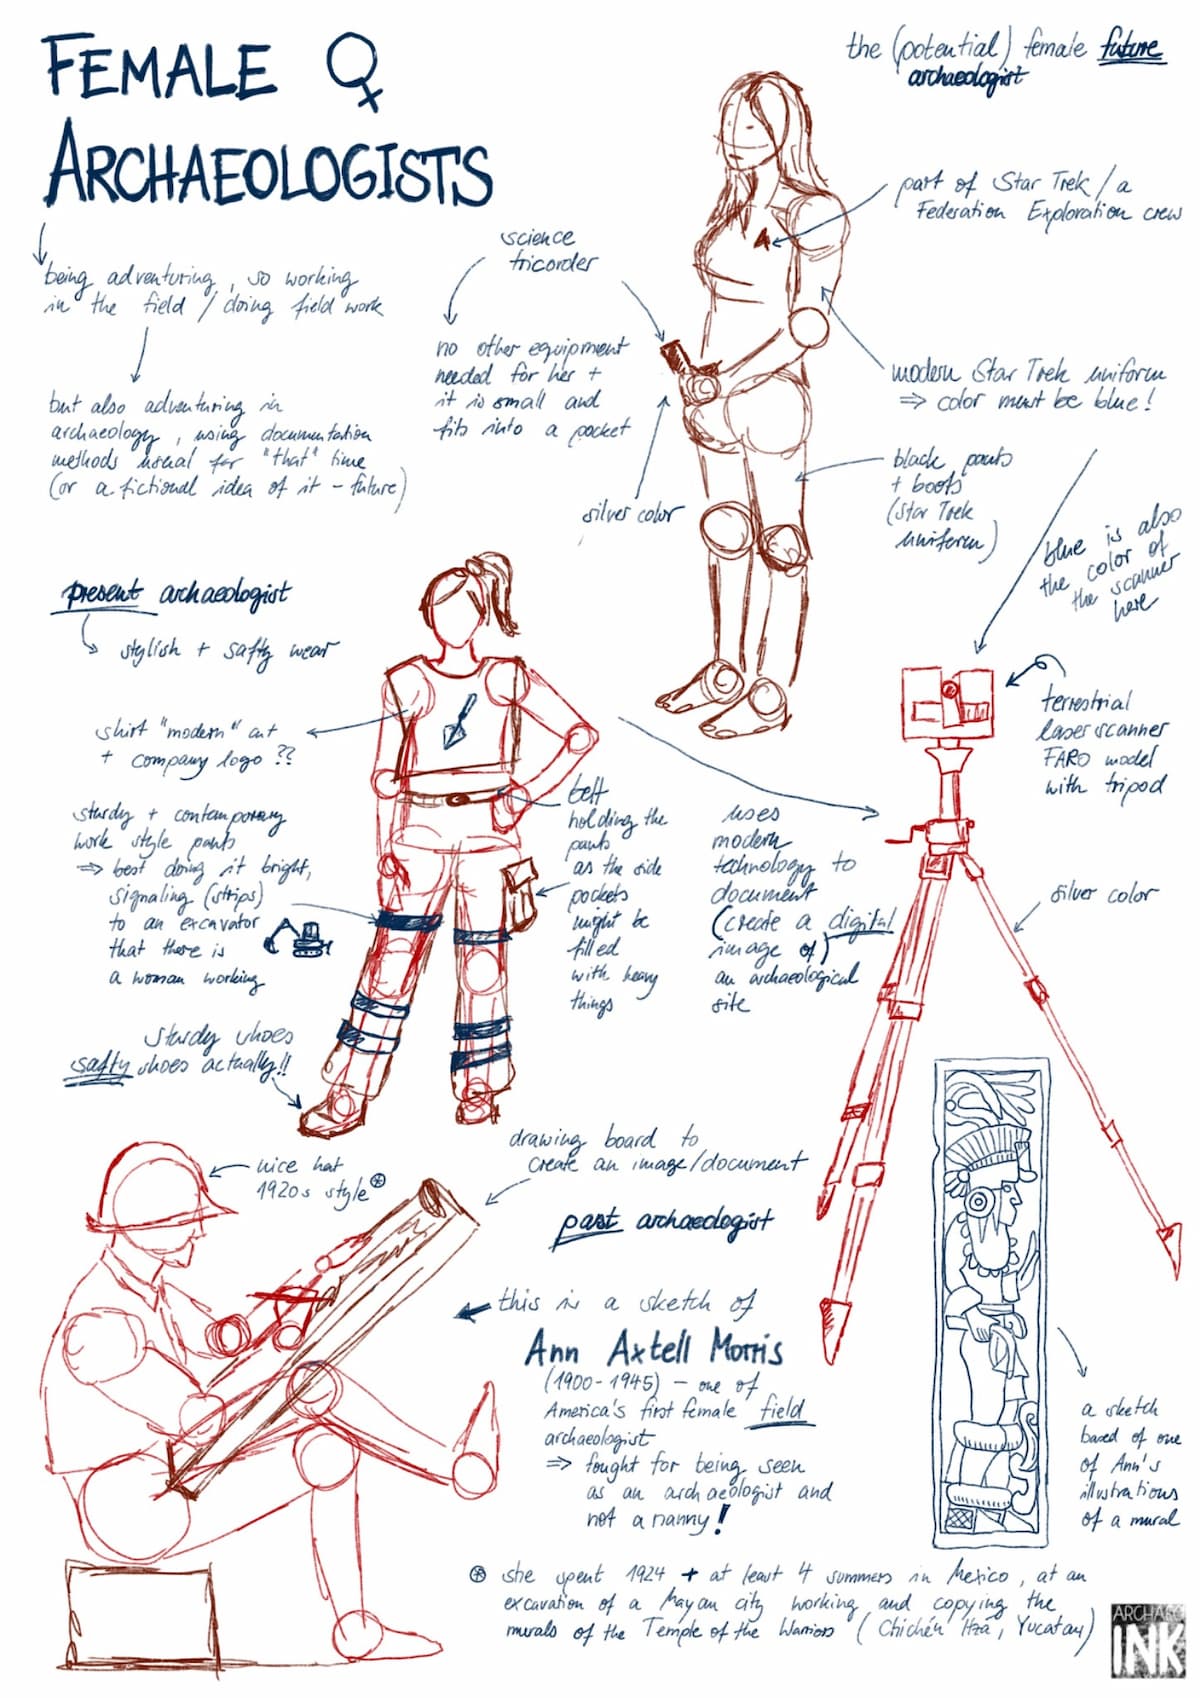 FEMALE ♀
ARCHAEOLOGISTS
being adventuring, so working
in the field / doing field work
but also adventuring in
archaeology, using documentation
methods usual for "that" time
(or a fictional idea of it - future)
the (potential) female future
archaeologist
part of Star Trek / a
Federation Exploration crew
science
tricorder
no other equipment
needed for her +
it is small and
fits into a pocket
silver color
modern Star Trek uniform
⇒ color must be blue!
black pants
+ boots
(Star Trek
uniform)
blue is also
the color of
the scanner
here
present archaeologist
stylish + safty wear
shirt "modern" cut
+ company logo ??
sturdy + contemporary
work style pants
⇒ best doing it bright,
signaling (strips)
to an excavator
that there is
a woman working
sturdy shoes
safty shoes actually!!
belt
holding the
pants
as the side
pockets
might be
filled
with heavy
things
uses
modern
technology to
document
(create a digital
image of)
an archaeological
site
terrestrial
laserscanner
FARO model
with tripod
silver color
nice hat
1920s style ⊛
drawing board to
create an image/document
past archaeologist
this is a sketch of
Ann Axtell Morris
(1900-1945) - one of
America's first female field
archaeologist
⇒ fought for being seen
as an archaeologist and
not a nanny!
a sketch
based of one
of Ann's
illustrations
of a mural
⊛ she spent 1924 + at least 4 summers in Mexico, at an
excavation of a Mayan city working and copying the
murals of the Temple of the Warriors (Chichén Itzá, Yucatan)
ARCHAEO
INK